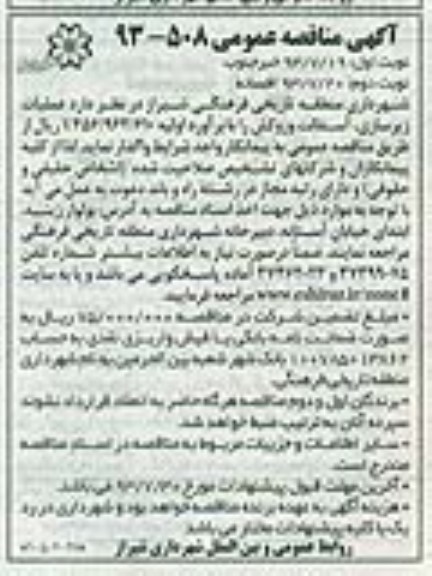 آگهی مناقصه عمومی ۵۰۸-۹۳
نوبت اول: ۹۳/۷/۱۹ خبرجنوب
نوبت دوم: ۹۳/۷/۲۰ افسانه
شهرداری منطقه تاریخی فرهنگی شیراز در نظر دارد عملیات
زیرسازی، آسفالت و روکش را با برآورد اولیه ریال از
طریق مناقصه عمومی به پیمانکار واجد شرایط واگذار نماید. لذا از کلیه
پیمانکاران و شرکتهای تشخیص صلاحیت شده (اشخاص حقیقی و
حقوقی) و دارای رتبه مجاز در رشته راه و باند دعوت به عمل می آید
با توجه به موارد ذیل جهت اخذ اسناد مناقصه به آدرس: بولوار
ابتدای خیابان دبیرخانه شهرداری منطقه تاریخی فرهنگی
مراجعه نمایند. ضمناً درصورت نیاز به اطلاعات بیشتر شماره تلفن
آماده پاسخگویی می باشد و یا به سایت
مراجعه فرمایید.
* مبلغ تضمین شرکت در مناقصه ریال به
صورت ضمانت نامه بانکی یا فیش واریزی نقدی به حساب
بانک شهر شعبه بین الحرمین به نام شهرداری
منطقه تاریخی فرهنگی.
* برندگان اول و دوم مناقصه هرگاه حاضر به انعقاد قرارداد نشوند
سپرده آنان به ترتیب ضبط خواهد شد.
* سایر اطلاعات و جزییات مربوط به مناقصه در اسناد مناقصه
مندرج است.
* آخرین مهلت قبول پیشنهادات مورخ ۹۳/۷/۳۰ می باشد.
* هزینه آگهی به عهده برنده مناقصه خواهد بود و شهرداری در رد
یک یا کلیه پیشنهادات مختار می باشد.
روابط عمومی و بین الملل شهرداری شیراز